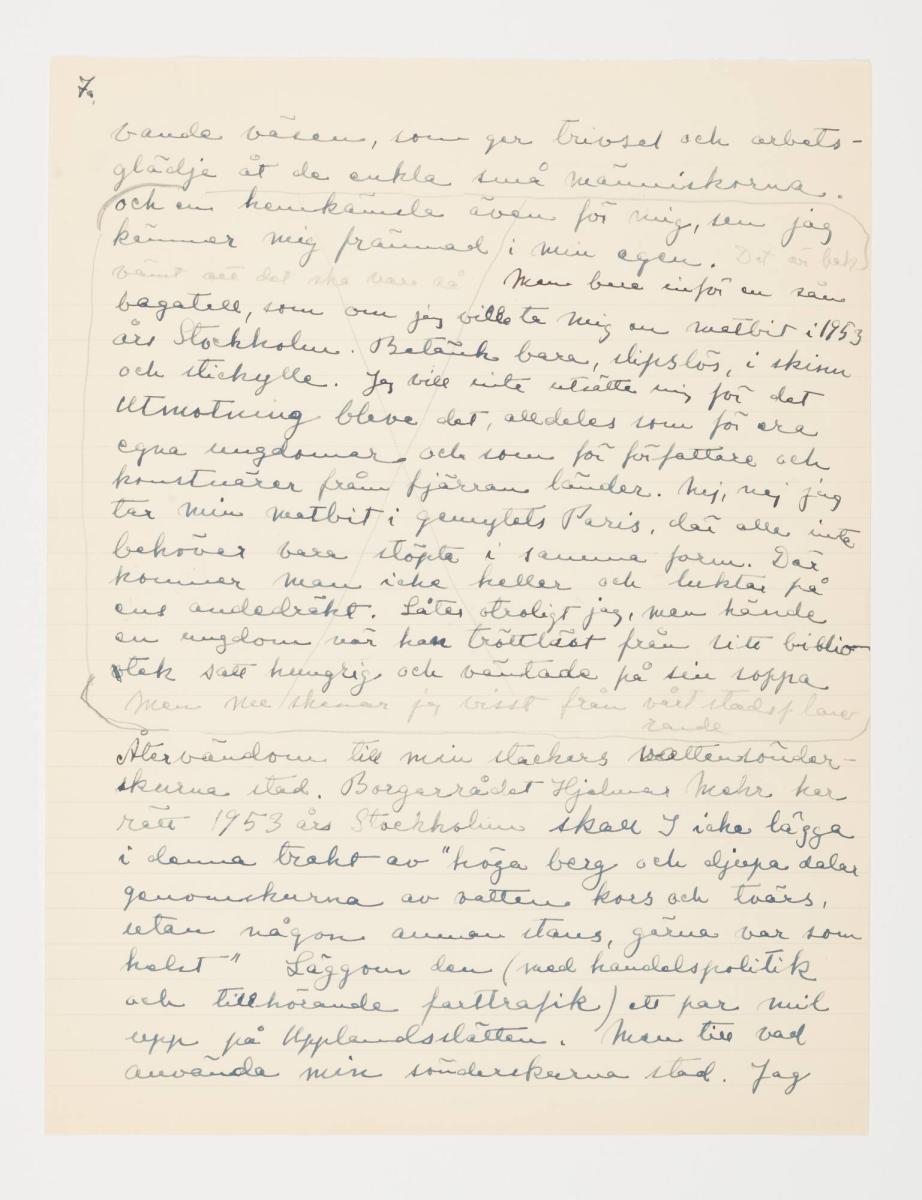 7.
vande väsen, som ger trivsel och arbets-
glädje åt de enkla små människorna.
och en hemkänsla även för mig, som jag
känner mig främmad i min egen. Det är bek
vämt att det ska vara så Men bara inför en sån
bagatell, som om jag ville ta mig en matbit i 1953
års Stockholm. Betänk bara, slipslös, i skinn
och stickylle. Jag vill inte utsätta mig för det
Utmotning bleve det, alldeles som för era
egna ungdomar och som för författare och
konstnärer från fjärran länder. Nej, nej jag
tar min matbit i gemytets Paris, där alla inte
behöver vara stöpta i samma form. Där
kommer man icke heller och luktar på
ens andedräkt. Låter otroligt jag, men hände
en ungdom när han tröttläst från sitt biblio
tek satt hungrig och väntade på sin soppa
Men nu skenar jag visst från vårt stadsplane
rande
Återvändom till min stackers vattensönder-
skurna stad. Borgarrådet Hjalmar Mehr har
rätt 1953 års Stockholm skall I icke lägga
i denna trakt av "höga berg och djupa dalar
genomskurna av vatten kors och tvärs,
utan någon annan stans, gärna var som
helst" Läggom den (med handelspolitik
och tillhörande farttrafik) ett par mil
upp på Upplandsslätten. Men till vad
använda min sönderskurna stad. Jag